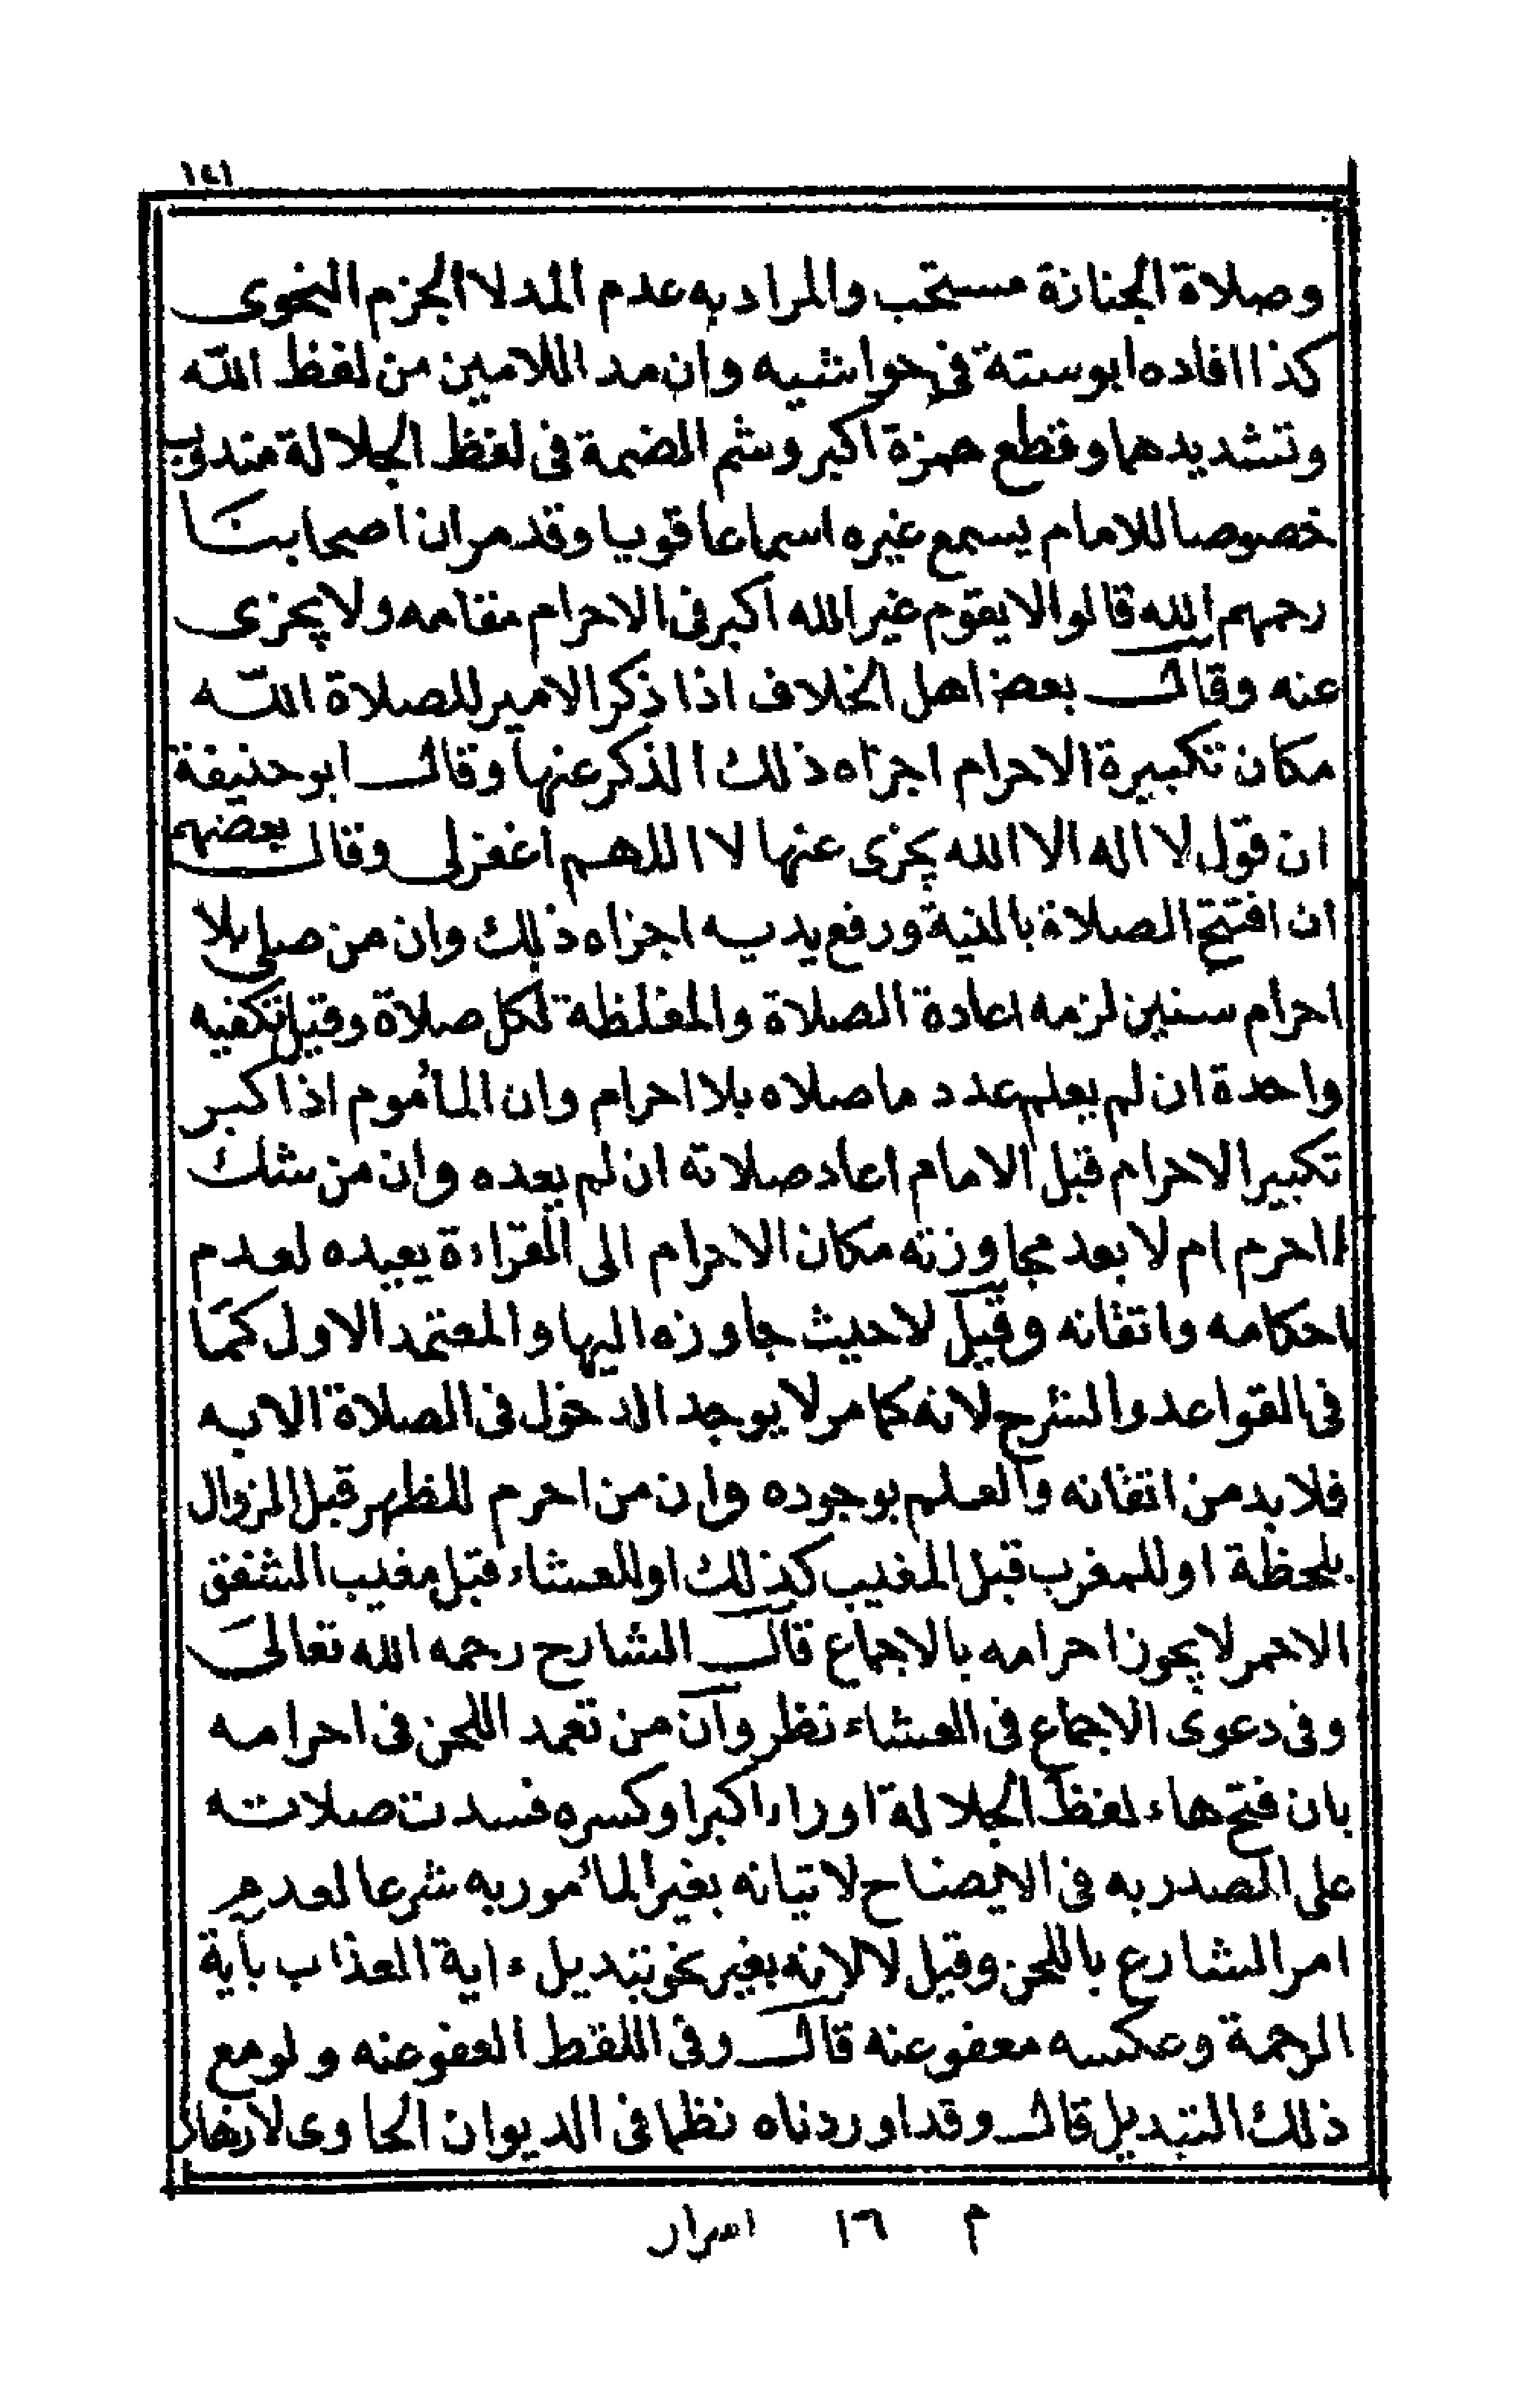 ١٤١
وصلاة الجنازة مستحب والمراد به عدم المد لا الجزم النحوى
كذا افاده ابوستة فى حواشيه وان مد اللامين من لفظ الله
وتشديدهما وقطع همزة اكبر وشم الضمة فى لفظ الجلالة مندوب
خصوصا للامام يسمع غيره اسماعا قويا وقد مر ان اصحابنا
رحمهم الله قالوا لا يقوم غير الله اكبر فى الاحرام مقامه ولا يجزى
عنه وقال بعض اهل الخلاف اذا ذكر الامير للصلاة الله
مكان تكبيرة الاحرام اجزاه ذلك الذكر عنها وقال ابو حنيفة
ان قول لا اله الا الله يجزى عنها لا اللهم اغفر لى وقال بعضهم
ان افتتح الصلاة بالنية ورفع يديه اجزاه ذلك وان من صلى بلا
احرام سنين لزمه اعادة الصلاة والمغلظة لكل صلاة وقيل تكفيه
واحدة ان لم يعلم عدد ما صلاه بلا احرام وان المأموم اذا كبر
تكبير الاحرام قبل الامام اعاد صلاته ان لم يعده وان من شك
ااحرم ام لا بعد مجاوزته مكان الاحرام الى القراءة يعيده لعدم
احكامه واتقانه وقيل لا حيث جاوزه اليها والمعتمد الاول كما
فى القواعد والشرح لانه كما مر لا يوجد الدخول فى الصلاة الا به
فلا بد من اتقانه والعلم بوجوده وان من احرم للظهر قبل الزوال
بلحظة او للمغرب قبل المغيب كذلك او للعشاء قبل مغيب الشفق
الاحمر لا يجوز احرامه بالاجماع قال الشارح رحمه الله تعالى
وفى دعوى الاجماع فى العشاء نظر وان من تعمد اللحن فى احرامه
بان فتح هاء لفظ الجلالة او راء اكبر او كسره فسدت صلاته
على المصدر به فى الايضاح لاتيانه بغير المأمور به شرعا لعدم
امر الشارع باللحن وقيل لا لانه بغير نحو تبديل ءاية العذاب بآية
الرحمة وعكسه معفو عنه قال وفى اللقط العفو عنه ولو مع
ذلك التبديل قال وقد اوردناه نظما فى الديوان الحاوى لازهار
م ١٦ اسرار